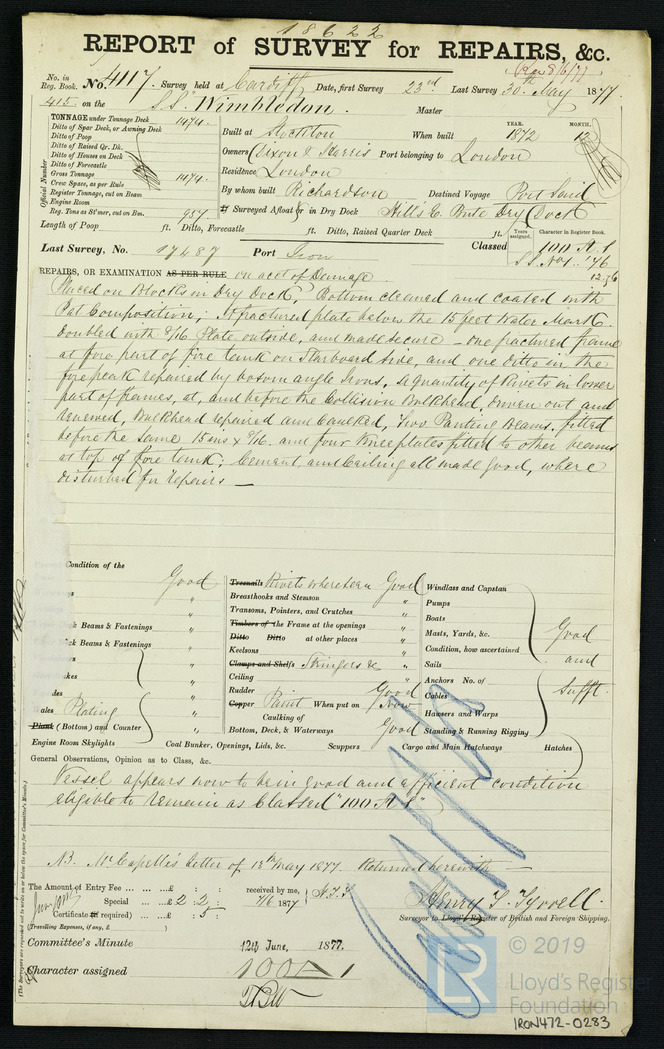 18622
REPORT of SURVEY for REPAIRS, &c.
No. in Reg. Book. No. 4117. Survey held at Cardiff Date, first Survey 23rd Last Survey 30th May 1877
415 on the S.S. Wimbledon. Master
TONNAGE under Tonnage Deck 1474.
Ditto of Spar Deck, or Awning Deck
Ditto of Poop
Ditto of Raised Qr. Dk.
Ditto of Houses on Deck
Ditto of Forecastle
Gross Tonnage 1474.
Crew Space, as per Rule
Register Tonnage, cut on Beam
Engine Room
Reg. Tons as St'mer, cut on Bm. 957
Official Number
YEAR. MONTH.
Built at Stockton When built 1872 12
Owners Dixon & Harris Port belonging to London
Residence London
By whom built Richardson Destined Voyage Port Said
If Surveyed Afloat or in Dry Dock Hill's E. Bute Dry Dock
Length of Poop ft. Ditto, Forecastle ft. Ditto, Raised Quarter Deck ft.
Years assigned. Character in Register Book.
Last Survey, No. 17487 Port Iron Classed 100 A.1
S.S. No 1. '76
12.76
REPAIRS, OR EXAMINATION AS PER RULE on acct of Damage
Placed on Blocks in Dry Dock, Bottom cleaned and coated with
Pat Composition; A fractured plate below the 15 feet Water Mark
doubled with 9/16 Plate outside, and made secure - one fractured frame
at fore part of fore tank on Starboard side, and one ditto in the
forepeak repaired by bosom angle Irons, a quantity of Rivets in lower
part of frames, at, and before the Collision Bulkhead, driven out and
renewed, Bulkhead repaired and Caulked, two Panting Beams fitted
before the same 15 ins x 9/16. and four knee plates fitted to other beams
at top of fore tank; Cement and Ceiling all made good, where
disturbed for repairs —
Condition of the
Good
Beams & Fastenings "
Beams & Fastenings "
Plating "
Plank (Bottom) and Counter "
Engine Room Skylights
Treenails Rivets where seen Good
Breasthooks and Stemson "
Transoms, Pointers, and Crutches "
Timbers of the Frame at the openings "
Ditto Ditto at other places "
Keelsons "
Clamps and Shelfs Stringers &c "
Ceiling "
Rudder Good
Copper Paint When put on Now
Caulking of
Bottom, Deck, & Waterways Good
Coal Bunker, Openings, Lids, &c. Scuppers Cargo and Main Hatchways Hatches
Windlass and Capstan
Pumps
Boats
Masts, Yards, &c. Good
Condition, how ascertained and
Sails
Anchors No. of Sufft.
Cables
Hawsers and Warps
Standing & Running Rigging
General Observations, Opinion as to Class, &c.
Vessel appears now to be in good and efficient condition
eligible to remain as Classed "100 A 1"
NB. Mr Capelle's letter of 18th May 1877 Returned herewith —
The Amount of Entry Fee ... ... ... £ : : received by me,
Special ... ... £ 2 : 2 : 7/6 1877 H.T.T
Certificate (if required) ... £ : 5 :
(Travelling Expenses, if any, £ )
Henry T. Tyrrell.
Surveyor to Lloyd's Register of British and Foreign Shipping.
Committee's Minute 12th June, 1877.
Character assigned 100 A 1
TBW
© 2019
LR
Lloyd's Register
Foundation
IRON472-0283